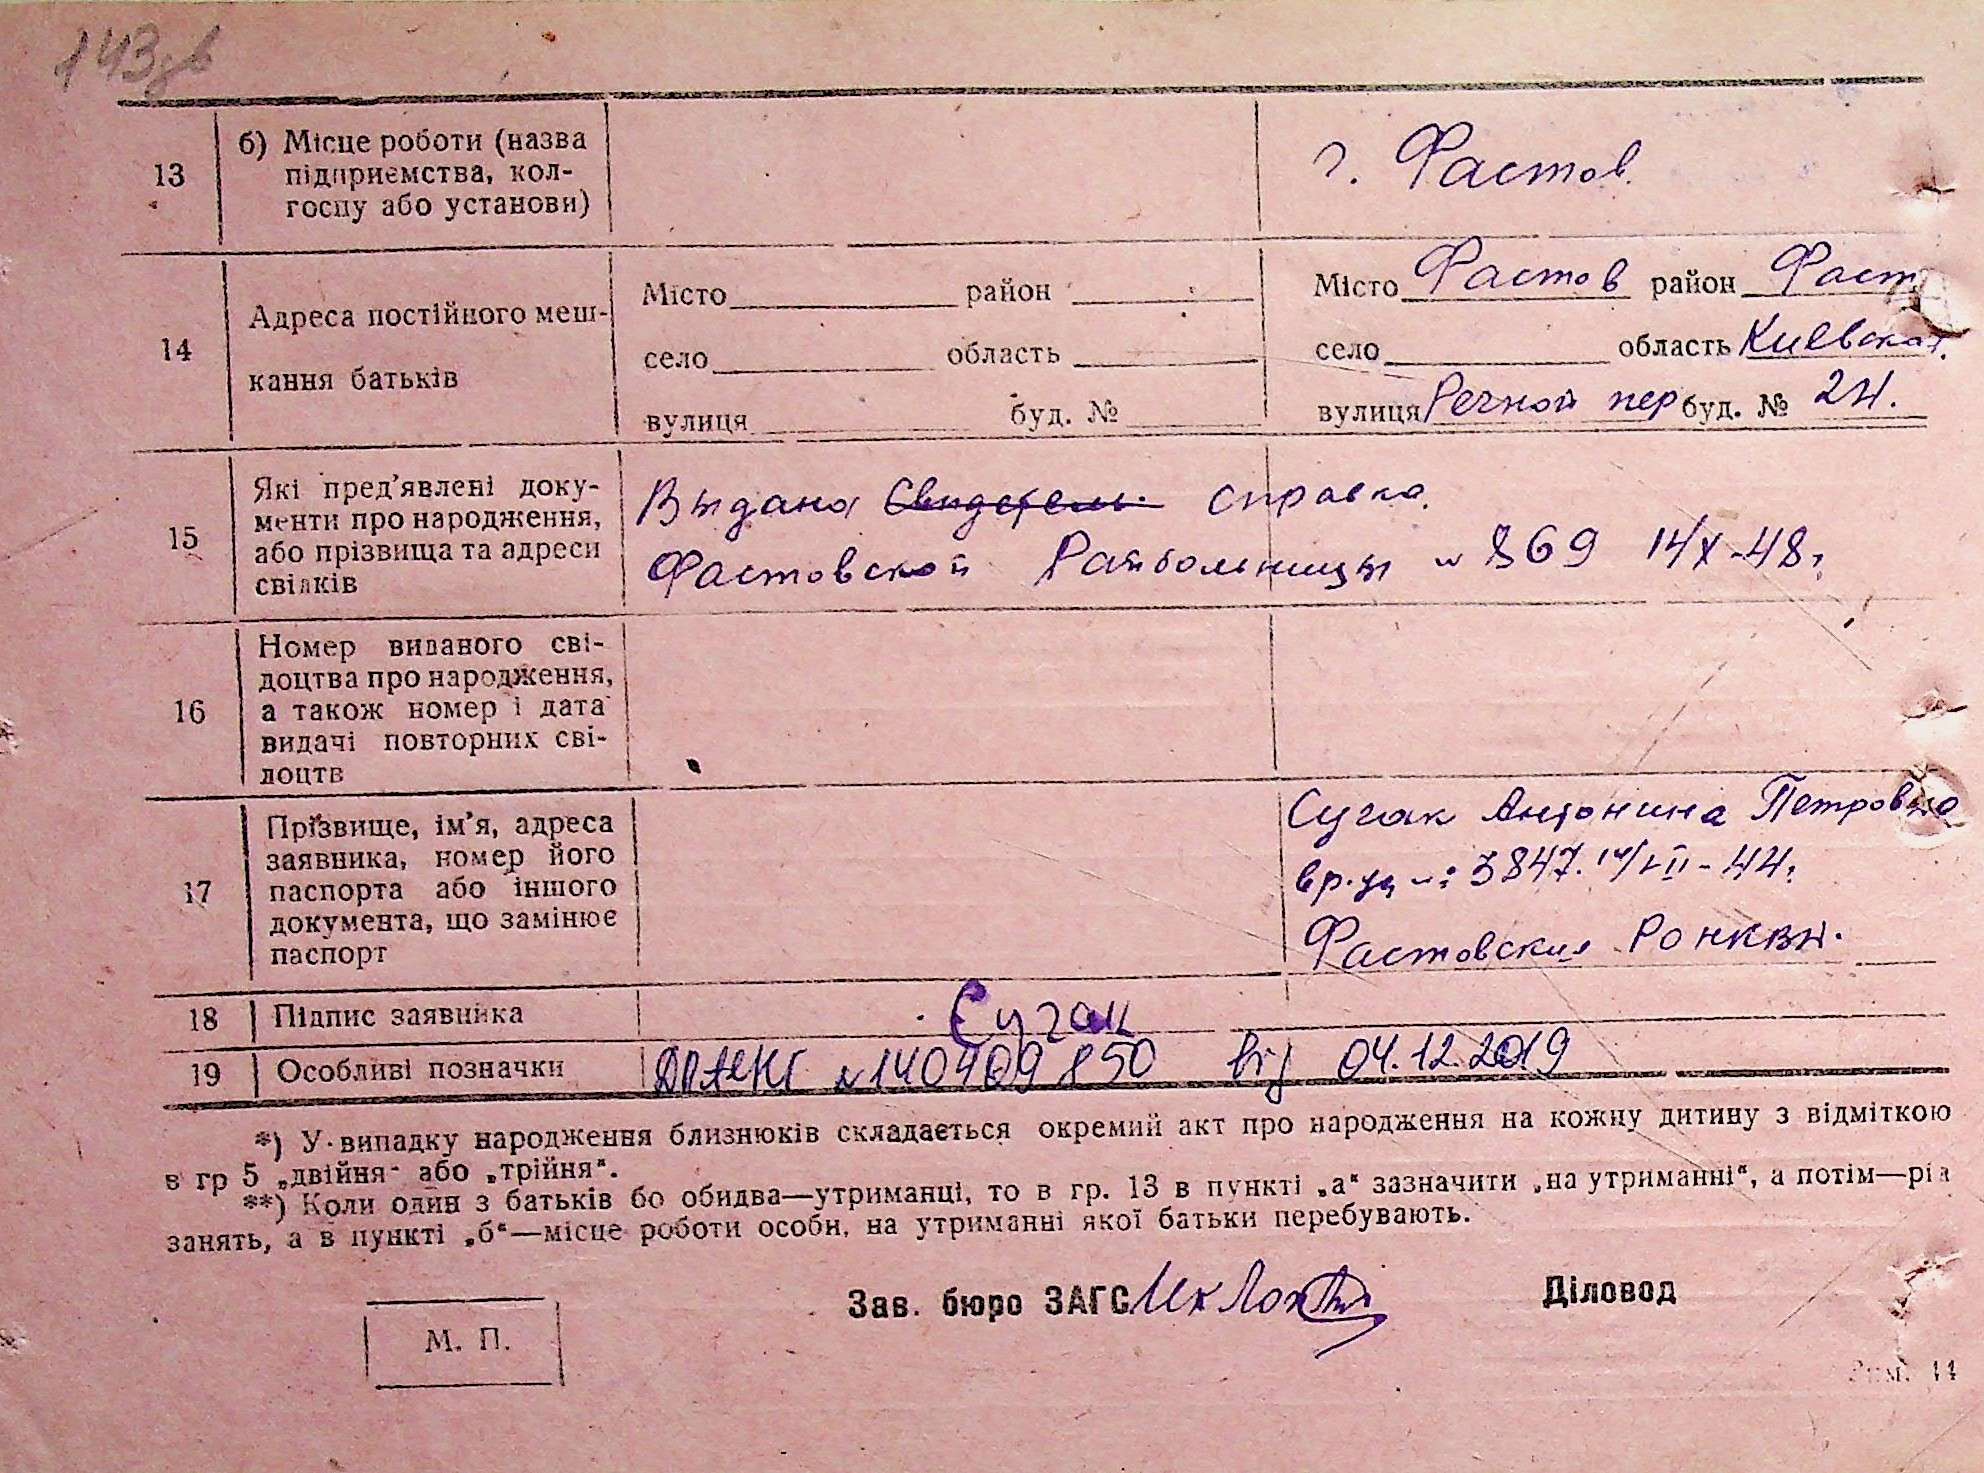 143зв
13
б) Місце роботи (назва
підприємства, кол-
госпу або установи)
г. Фастов.
14
Адреса постійного меш-
кання батьків
Місто район
село область
вулиця буд. №
Місто Фастов район Фаст.
село область Киевская.
вулиця Речной пер буд. № 24.
15
Які пред’явлені доку-
менти про народження,
або прізвища та адреси
свідків
Выдана Свидетель справка.
Фастовской Райбольницы № 869 14/X-48г.
16
Номер виданого сві-
доцтва про народження,
а також номер і дата
видачі повторних сві-
доцтв
17
Прізвище, ім’я, адреса
заявника, номер його
паспорта або іншого
документа, що замінює
паспорт
Сугак Антонина Петровна
вр. уд № 3847.
Фастовский РОНКВД.
18
Підпис заявника
Сугак
19
Особливі позначки
від 04.12.2019
*) У випадку народження близнюків складається окремий акт про народження на кожну дитину з відміткою
в гр 5 „двійня“ або „трійня“.
**) Коли один з батьків бо обидва—утриманці, то в гр. 13 в пункті „а“ зазначити „на утриманні“, а потім—рід
занять, а в пункті „б“—місце роботи особи, на утриманні якої батьки перебувають.
Зав. бюро ЗАГС
Діловод
М. П.